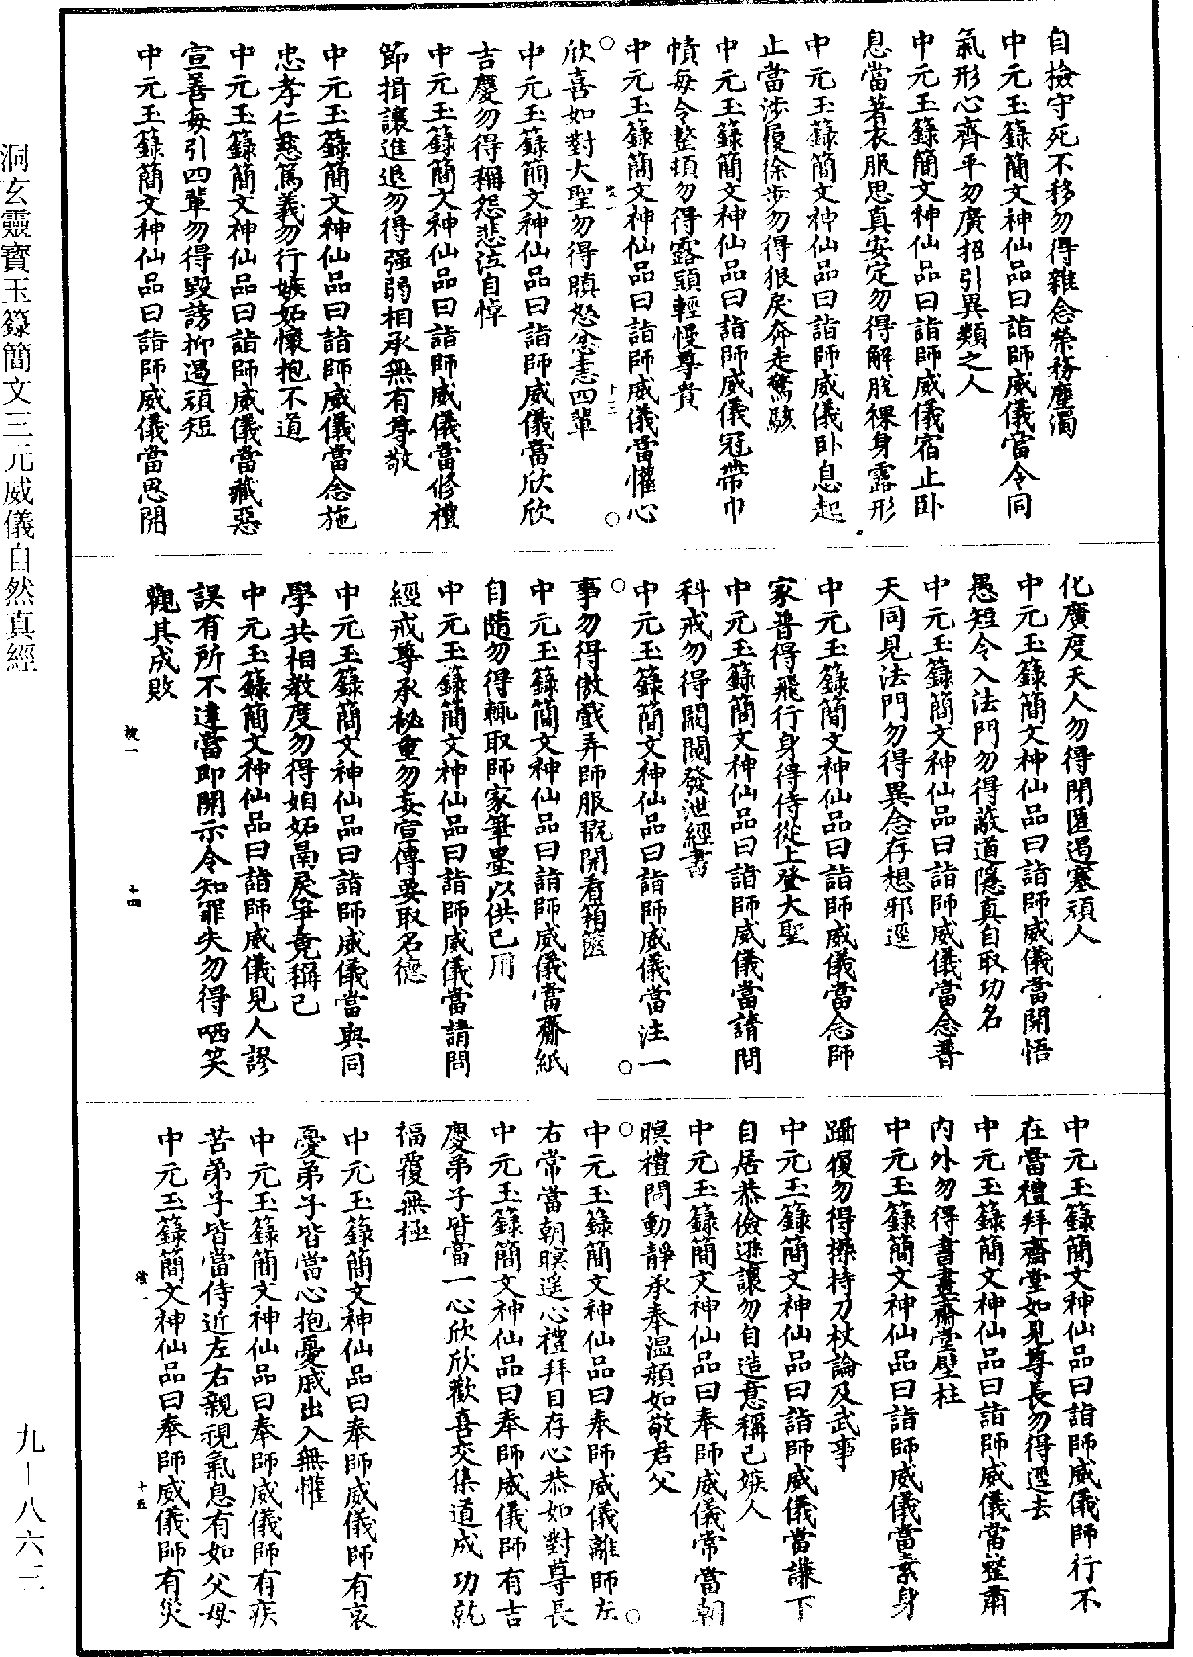 自檢守死不移勿得雜念榮務塵濁
中元玉籙簡文神仙品曰詣師威儀當令同
氣形心齊平勿廣招引異類之人
中元玉籙簡文神仙品曰詣師威儀宿止卧
息當著衣服思真安定勿得解脫裸身露形
中元玉籙簡文神仙品曰詣師威儀卧息起
止當涉履徐步勿得狠戾奔走驚駭
中元玉籙簡文神仙品曰詣師威儀冠帶巾
幘每令整頓勿得露頭輕慢尊貴
中元玉籙簡文神仙品曰詣師威儀當懽心
欣喜如對大聖勿得瞋怒恚四輩
中元玉籙簡文神仙品曰詣師威儀當欣欣
吉慶勿得稱怨悲泣自悼
中元玉籙簡文神仙品曰詣師威儀當修禮
節揖讓進退勿得强弱相承無有尊敬
中元玉籙簡文神仙品曰詣師威儀當念施
忠孝仁慈篤義勿行嫉妬懷抱不道
中元玉籙簡文神仙品曰詣師威儀當藏惡
宣善每引四輩勿得毀謗抑遏頑短
中元玉籙簡文神仙品曰詣師威儀當思開
化廣度天人勿得閉匿遏塞頑人
中元玉籙簡文神仙品曰詣師威儀當開悟
愚短令入法門勿得蔽道隱真自取功名
中元玉籙簡文神仙品曰詣師威儀當念普
天同見法門勿得異念存想邪逕
中元玉籙簡文神仙品曰詣師威儀當念師
家普得飛行身得侍從上登大聖
中元玉籙簡文神仙品曰詣師威儀當請問
科戒勿得闚閱發泄經書
中元玉籙簡文神仙品曰詣師威儀當注一
事勿得傲戲弄師服翫開看箱篋
中元玉籙簡文神仙品曰詣師威儀當齎紙
自隨勿得輒取師家筆墨以供己用
中元玉籙簡文神仙品曰詣師威儀當請問
經戒尊承秘重勿妄宣傳要取名德
中元玉籙簡文神仙品曰詣師威儀當與同
學共相教度勿得妬咼戾爭竟稱己
中元玉籙簡文神仙品曰詣師威儀見人謬
誤有所不逮當即開示令知罪失勿得哂笑
觀其成敗
十四
中元玉籙簡文神仙品曰詣師威儀師行不
在當禮拜齋堂如見尊長勿得逕去
中元玉籙簡文神仙品曰詣師威儀當整肅
內外勿得書畫齋堂壁柱
中元玉籙簡文神仙品曰詣師威儀當素身
躡履勿得操持刀杖論及武事
中元玉籙簡文神仙品曰詣師威儀當謙下
自居恭儉遜讓勿自造意稱己嫉人
中元玉籙簡文神仙品曰奉師威儀常當朝
暝禮問動靜承奉溫顏如敬君父
中元玉籙簡文神仙品曰奉師威儀離師左
右常當朝暝遥心禮拜目存心恭如對尊長
中元玉籙簡文神仙品曰奉師威儀師有吉
慶弟子皆當一心欣欣歡喜交集道成功就
福覆無極
中元玉籙簡文神仙品曰奉師威儀師有哀
憂弟子皆當心抱憂戚出入無懽
中元玉籙簡文神仙品曰奉師威儀師有疾
苦弟子皆當侍近左右親視氣息有如父母
中元玉籙簡文神仙品曰奉師威儀師有災
十五
洞玄靈寶玉籙簡文三元威儀自然真經
九—八六三